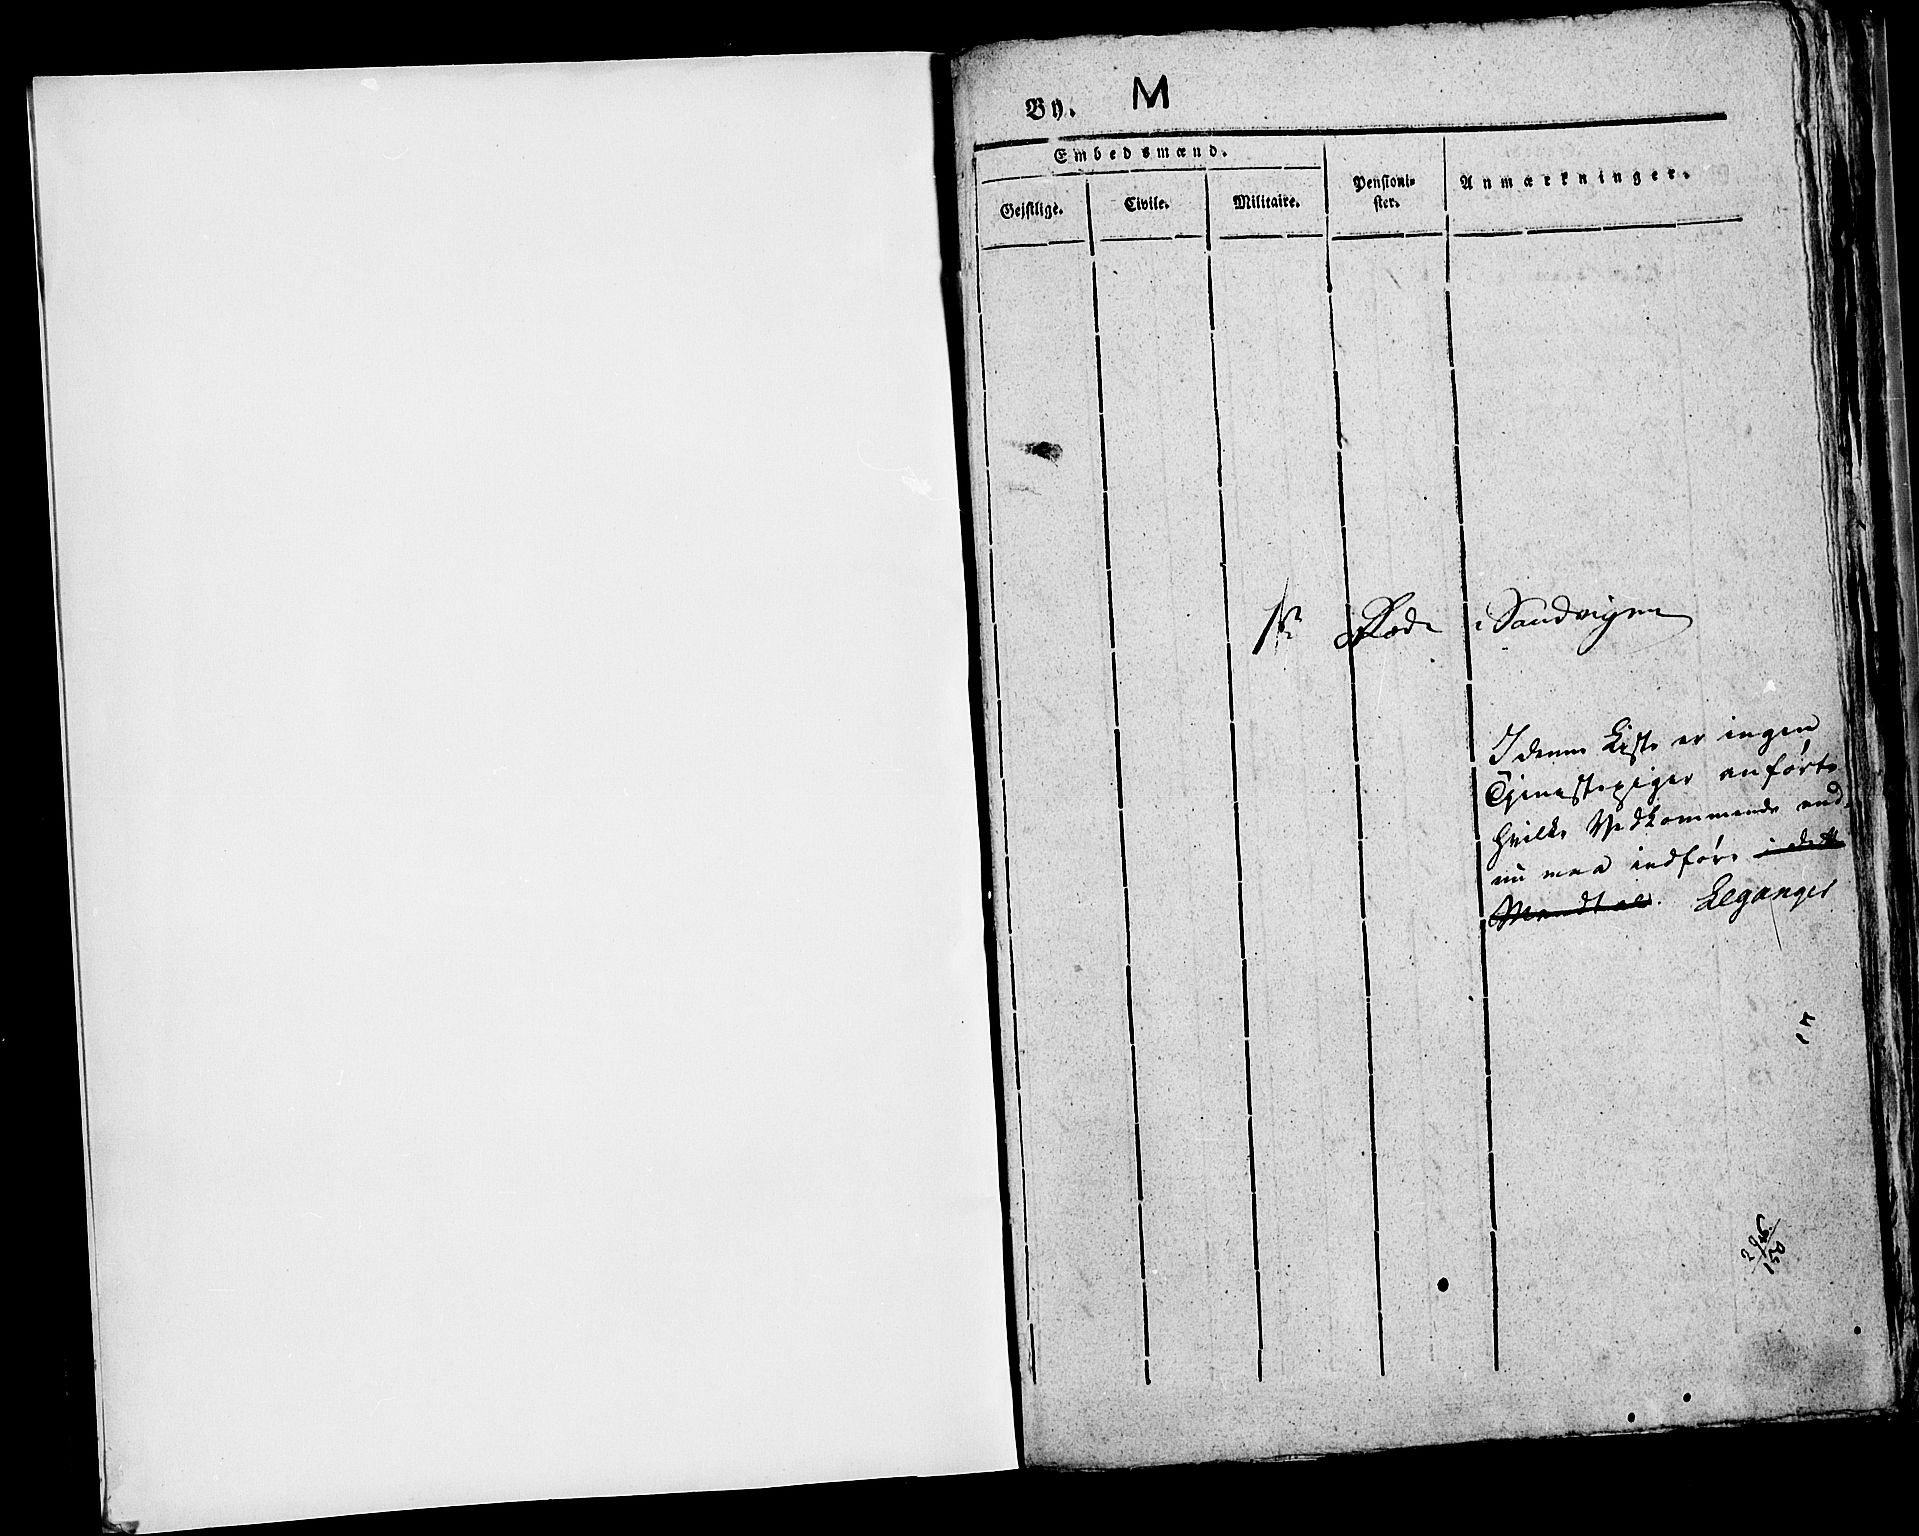 By. M
Embedsmænd.
Geistlige. Civile. Militaire. Pensioni-
ster. Anmærkninger.
1ste Rode i Sandvigen
I denne Liste er ingen
Tjenestepiger anførte
hvilke Vedkommende end-
nu maa indføre i dette
Mandtal. Leganger